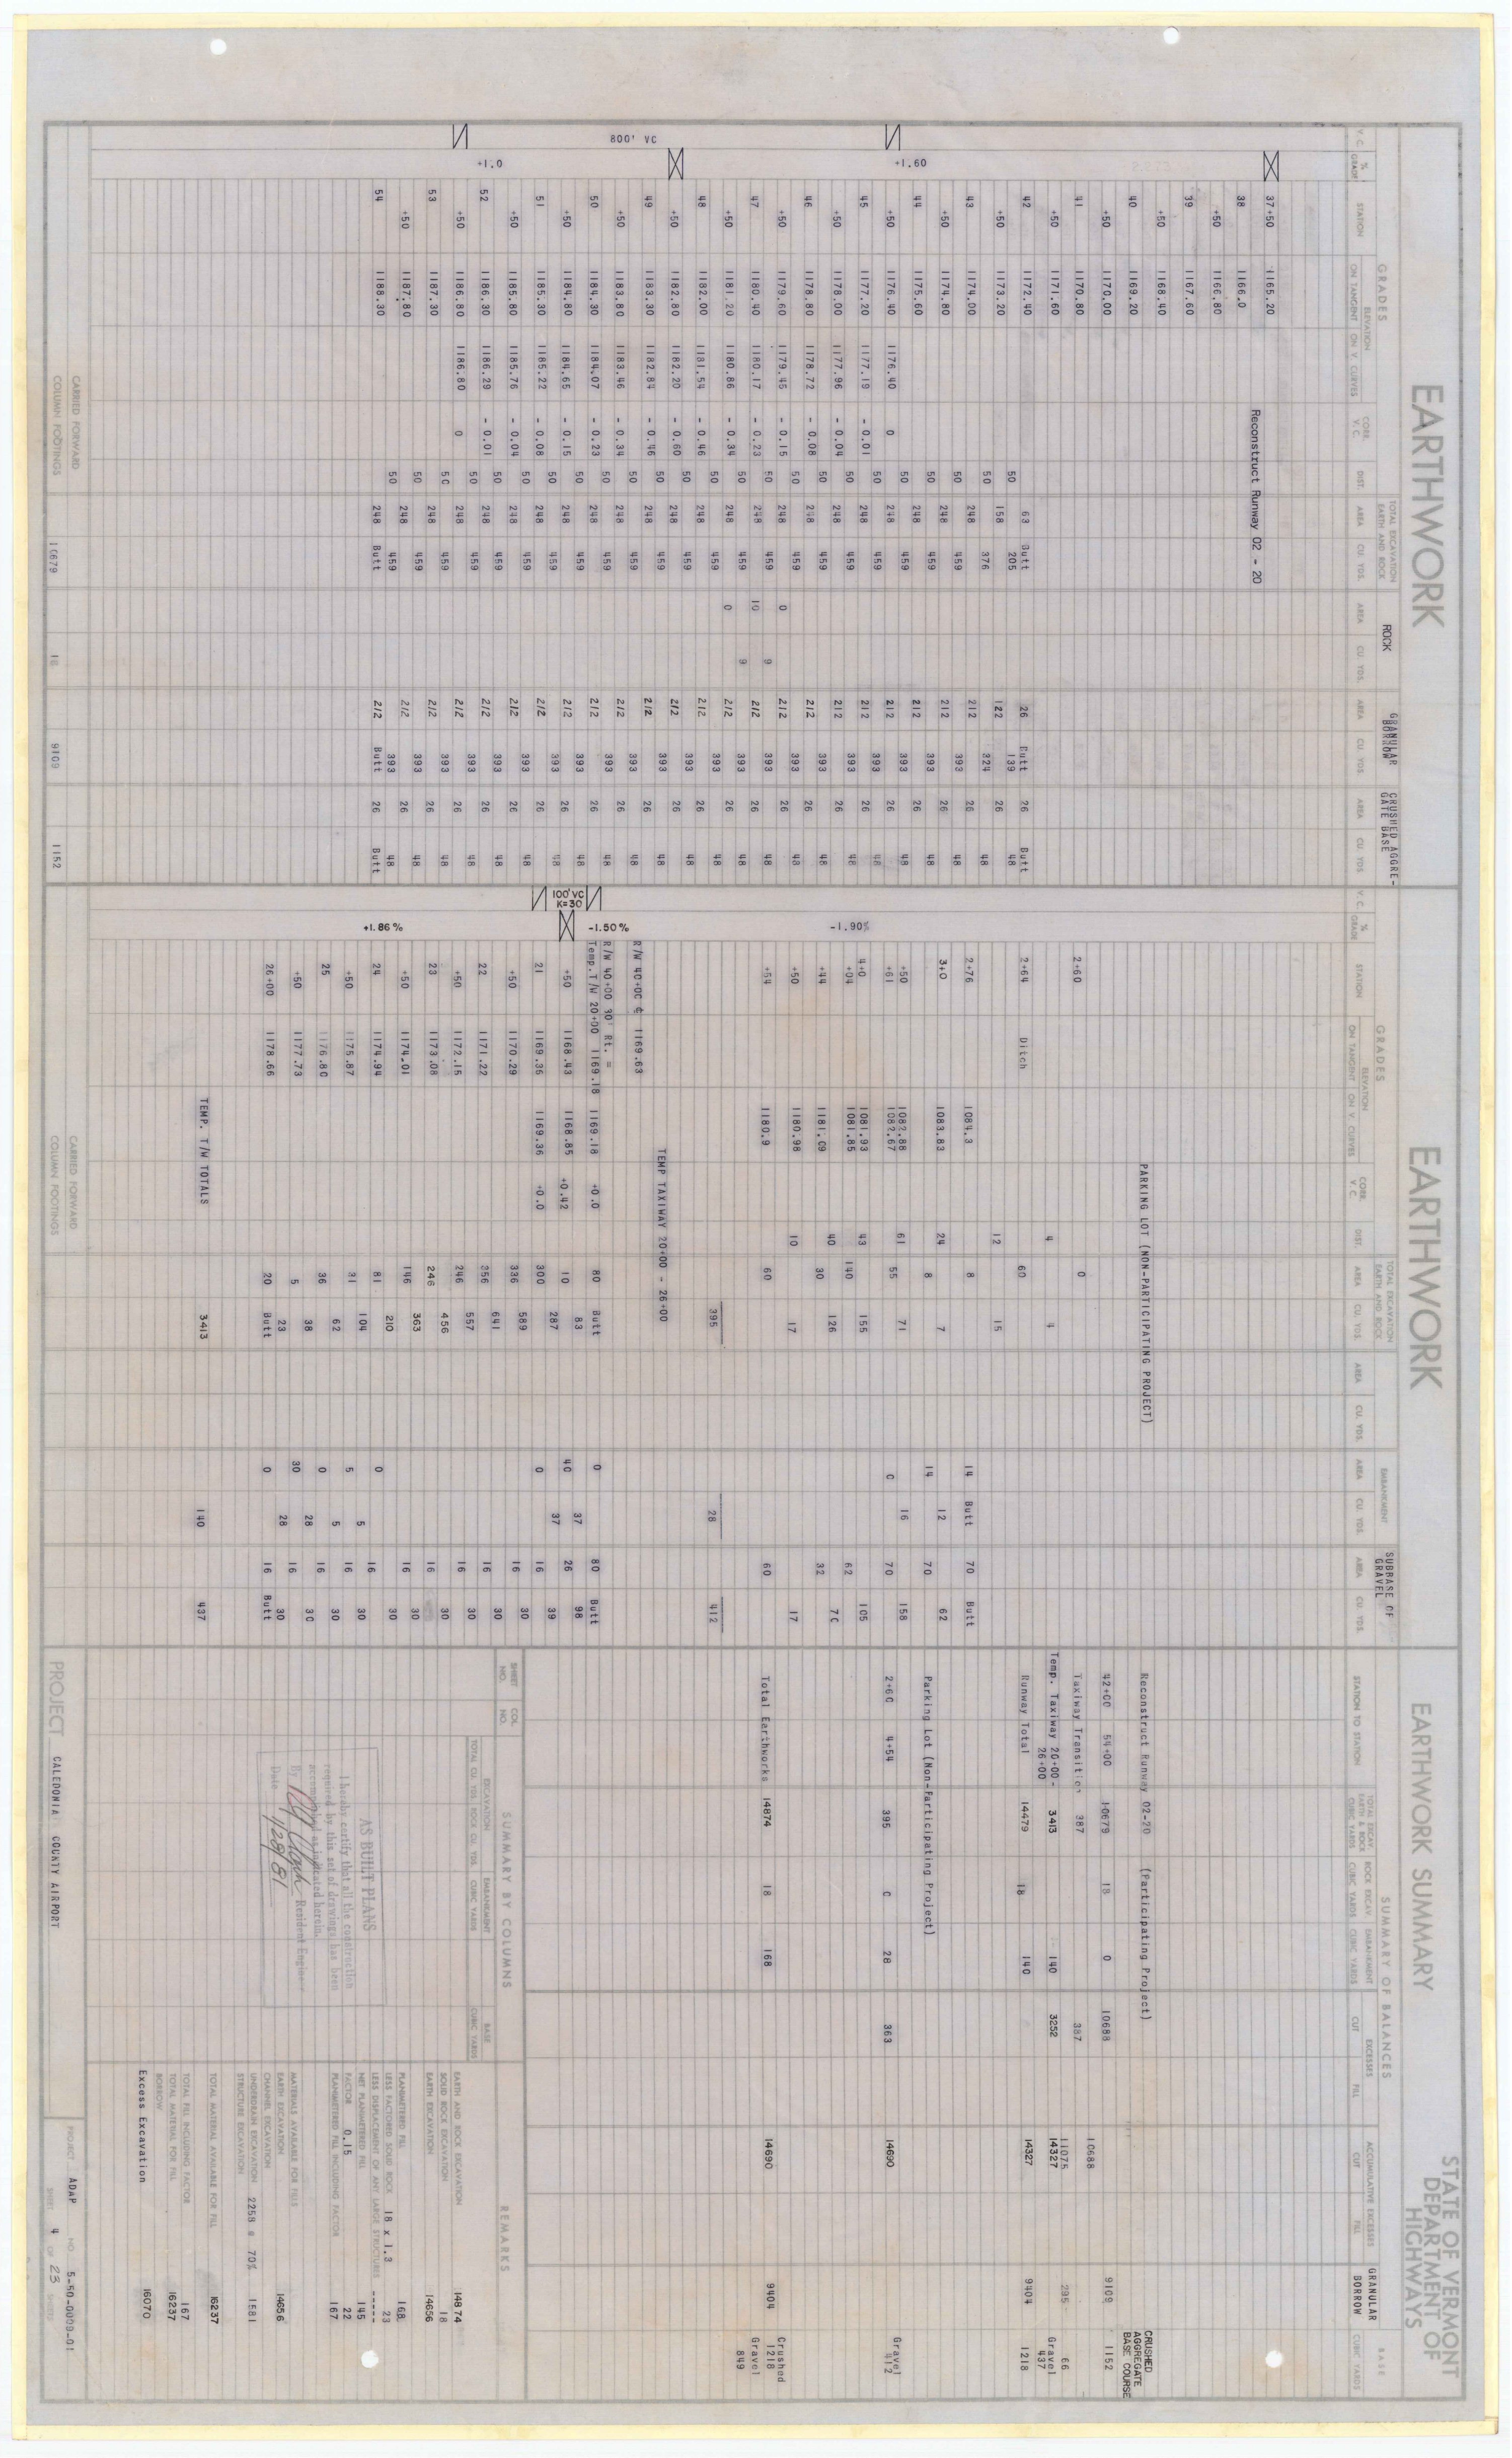 STATE OF VERMONT
DEPARTMENT OF
HIGHWAYS
EARTHWORK
V.C. % GRADE STATION GRADES ELEVATION ON TANGENT ON V. CURVES CORR. V.C. DIST. TOTAL EXCAVATION EARTH AND ROCK AREA CU. YDS. ROCK AREA CU. YDS. GRANULAR BORROW AREA CU. YDS. CRUSHED AGGREGATE BASE AREA CU. YDS.
37+50 1165.20
Reconstruct Runway 02 - 20
38 1166.0
+50 1166.80
39 1167.60
+50 1168.40
40 1169.20
+50 1170.00
41 1170.80
+50 1171.60
42 1172.40 63 Butt 26 Butt 26 Butt
50 205 139 48
+50 1173.20 158 122 26
50 376 224 48
43 1174.00 248 212 26
50 459 393 48
+50 1174.80 248 212 26
50 459 393 48
44 1175.60 248 212 26
50 459 393 48
+1.60
+50 1176.40 1176.40 0 248 212 26
50 459 393 48
45 1177.20 1177.19 - 0.01 248 212 26
50 459 393 48
+50 1178.00 1177.96 - 0.04 248 212 26
50 459 393 48
46 1178.80 1178.72 - 0.08 248 212 26
50 459 393 48
+50 1179.60 1179.45 - 0.15 248 0 212 26
50 459 9 393 48
47 1180.40 1180.17 - 0.23 248 10 212 26
50 459 9 393 48
+50 1181.20 1180.86 - 0.34 248 0 212 26
50 459 393 48
48 1182.00 1181.54 - 0.46 248 212 26
50 459 393 48
+50 1182.80 1182.20 - 0.60 248 212 26
50 459 393 48
800' VC
49 1183.30 1182.84 - 0.46 248 212 26
50 459 393 48
+50 1183.80 1183.46 - 0.34 248 212 26
50 459 393 48
50 1184.30 1184.07 - 0.23 248 212 26
50 459 393 48
+50 1184.80 1184.65 - 0.15 248 212 26
50 459 393 48
51 1185.30 1185.22 - 0.08 248 212 26
50 459 393 48
+50 1185.80 1185.76 - 0.04 248 212 26
50 459 393 48
+1.0
52 1186.30 1186.29 - 0.01 248 212 26
50 459 393 48
+50 1186.80 1186.80 0 248 212 26
50 459 393 48
53 1187.30 248 212 26
50 459 393 48
+50 1187.80 248 212 26
50 459 393 48
54 1188.30 248 Butt 212 Butt 26 Butt
CARRIED FORWARD
COLUMN FOOTINGS 10679 18 9109 1152
EARTHWORK
V.C. % GRADE STATION GRADES ELEVATION ON TANGENT ON V. CURVES CORR. V.C. DIST. TOTAL EXCAVATION EARTH AND ROCK AREA CU. YDS. AREA CU. YDS. EMBANKMENT AREA CU. YDS. SUBBASE OF GRAVEL AREA CU. YDS.
PARKING LOT (NON-PARTICIPATING PROJECT)
2+60 0
4 4
2+64 Ditch 60
12 15
2+76 1084.3 8 14 Butt 70 Butt
24 7 12 62
3+0 1083.83 8 14 70
61 71 16 158
+50 1082.88
+61 1082.67 55 0 70
43 155 105
4+0 1081.93
+04 1081.85 140 62
40 126 70
+44 1181.09 30 32
-1.90%
+50 1180.98
10 17 17
+54 1180.9 60 60
395 28 412
TEMP TAXIWAY 20+00 - 26+00
R/W 40+00 ℄ 1169.63
R/W 40+00 90' Rt. =
Temp. T/W 20+00 1169.18 1169.18 +0.0 80 Butt 0 80 Butt
-1.50%
83 37 98
100' VC
K=30
+50 1168.43 1168.85 +0.42 10 40 26
287 37 39
21 1169.36 1169.36 +0.0 300 0 16
589 30
+50 1170.29 336 16
641 30
22 1171.22 356 16
557 30
+50 1172.15 246 16
456 30
23 1173.08 246 16
363 30
+50 1174.01 146 16
210 30
+1.86%
24 1174.94 81 0 16
104 5 30
+50 1175.87 31 5 16
62 5 30
25 1176.80 36 0 16
38 28 30
+50 1177.73 5 30 16
23 28 30
26+00 1178.66 20 Butt 0 16 Butt
TEMP. T/W TOTALS 3413 140 437
CARRIED FORWARD
COLUMN FOOTINGS
EARTHWORK SUMMARY
SUMMARY OF BALANCES
STATION TO STATION TOTAL EXCAV. EARTH & ROCK CUBIC YARDS ROCK EXCAV. CUBIC YARDS EMBANKMENT CUBIC YARDS EXCESSES CUT FILL ACCUMULATIVE EXCESSES CUT FILL GRANULAR BORROW BASE CUBIC YARDS
CRUSHED AGGREGATE BASE COURSE
Reconstruct Runway 02-20 (Participating Project)
42+00 54+00 10679 18 0 10688 10688 9109 1152
Taxiway Transition 387 387 11075 295 66
Temp. Taxiway 20+00 - 26+00 3413 140 3252 14327 Gravel 437
Runway Total 14479 18 140 14327 9404 1218
Parking Lot (Non-Participating Project)
2+60 4+54 395 0 28 363 14690 Gravel 412
Total Earthworks 14874 18 168 14690 9404 Crushed 1218 Gravel 849
SUMMARY BY COLUMNS
SHEET NO. COL. NO. EXCAVATION TOTAL CU. YDS. ROCK CU. YDS. EMBANKMENT CUBIC YARDS BASE CUBIC YARDS
AS BUILT PLANS
I hereby certify that all the construction
required by this set of drawings has been
accomplished as indicated herein.
By Resident Engineer
Date 1/28/81
REMARKS
EARTH AND ROCK EXCAVATION 14874
SOLID ROCK EXCAVATION 18
EARTH EXCAVATION 14656
PLANIMETERED FILL 168
LESS FACTORED SOLID ROCK 18 x 1.3 23
LESS DISPLACEMENT OF ANY LARGE STRUCTURES -----
NET PLANIMETERED FILL 145
FACTOR 0.15 22
PLANIMETERED FILL INCLUDING FACTOR 167
MATERIALS AVAILABLE FOR FILLS
EARTH EXCAVATION 14656
CHANNEL EXCAVATION
UNDERDRAIN EXCAVATION 2258 @ 70% 1581
STRUCTURE EXCAVATION
TOTAL MATERIAL AVAILABLE FOR FILL 16237
TOTAL FILL INCLUDING FACTOR 167
TOTAL MATERIAL FOR FILL 16237
BORROW
Excess Excavation 16070
PROJECT CALEDONIA COUNTY AIRPORT
PROJECT ADAP NO. 5-50-0009-01
SHEET 4 OF 23 SHEETS